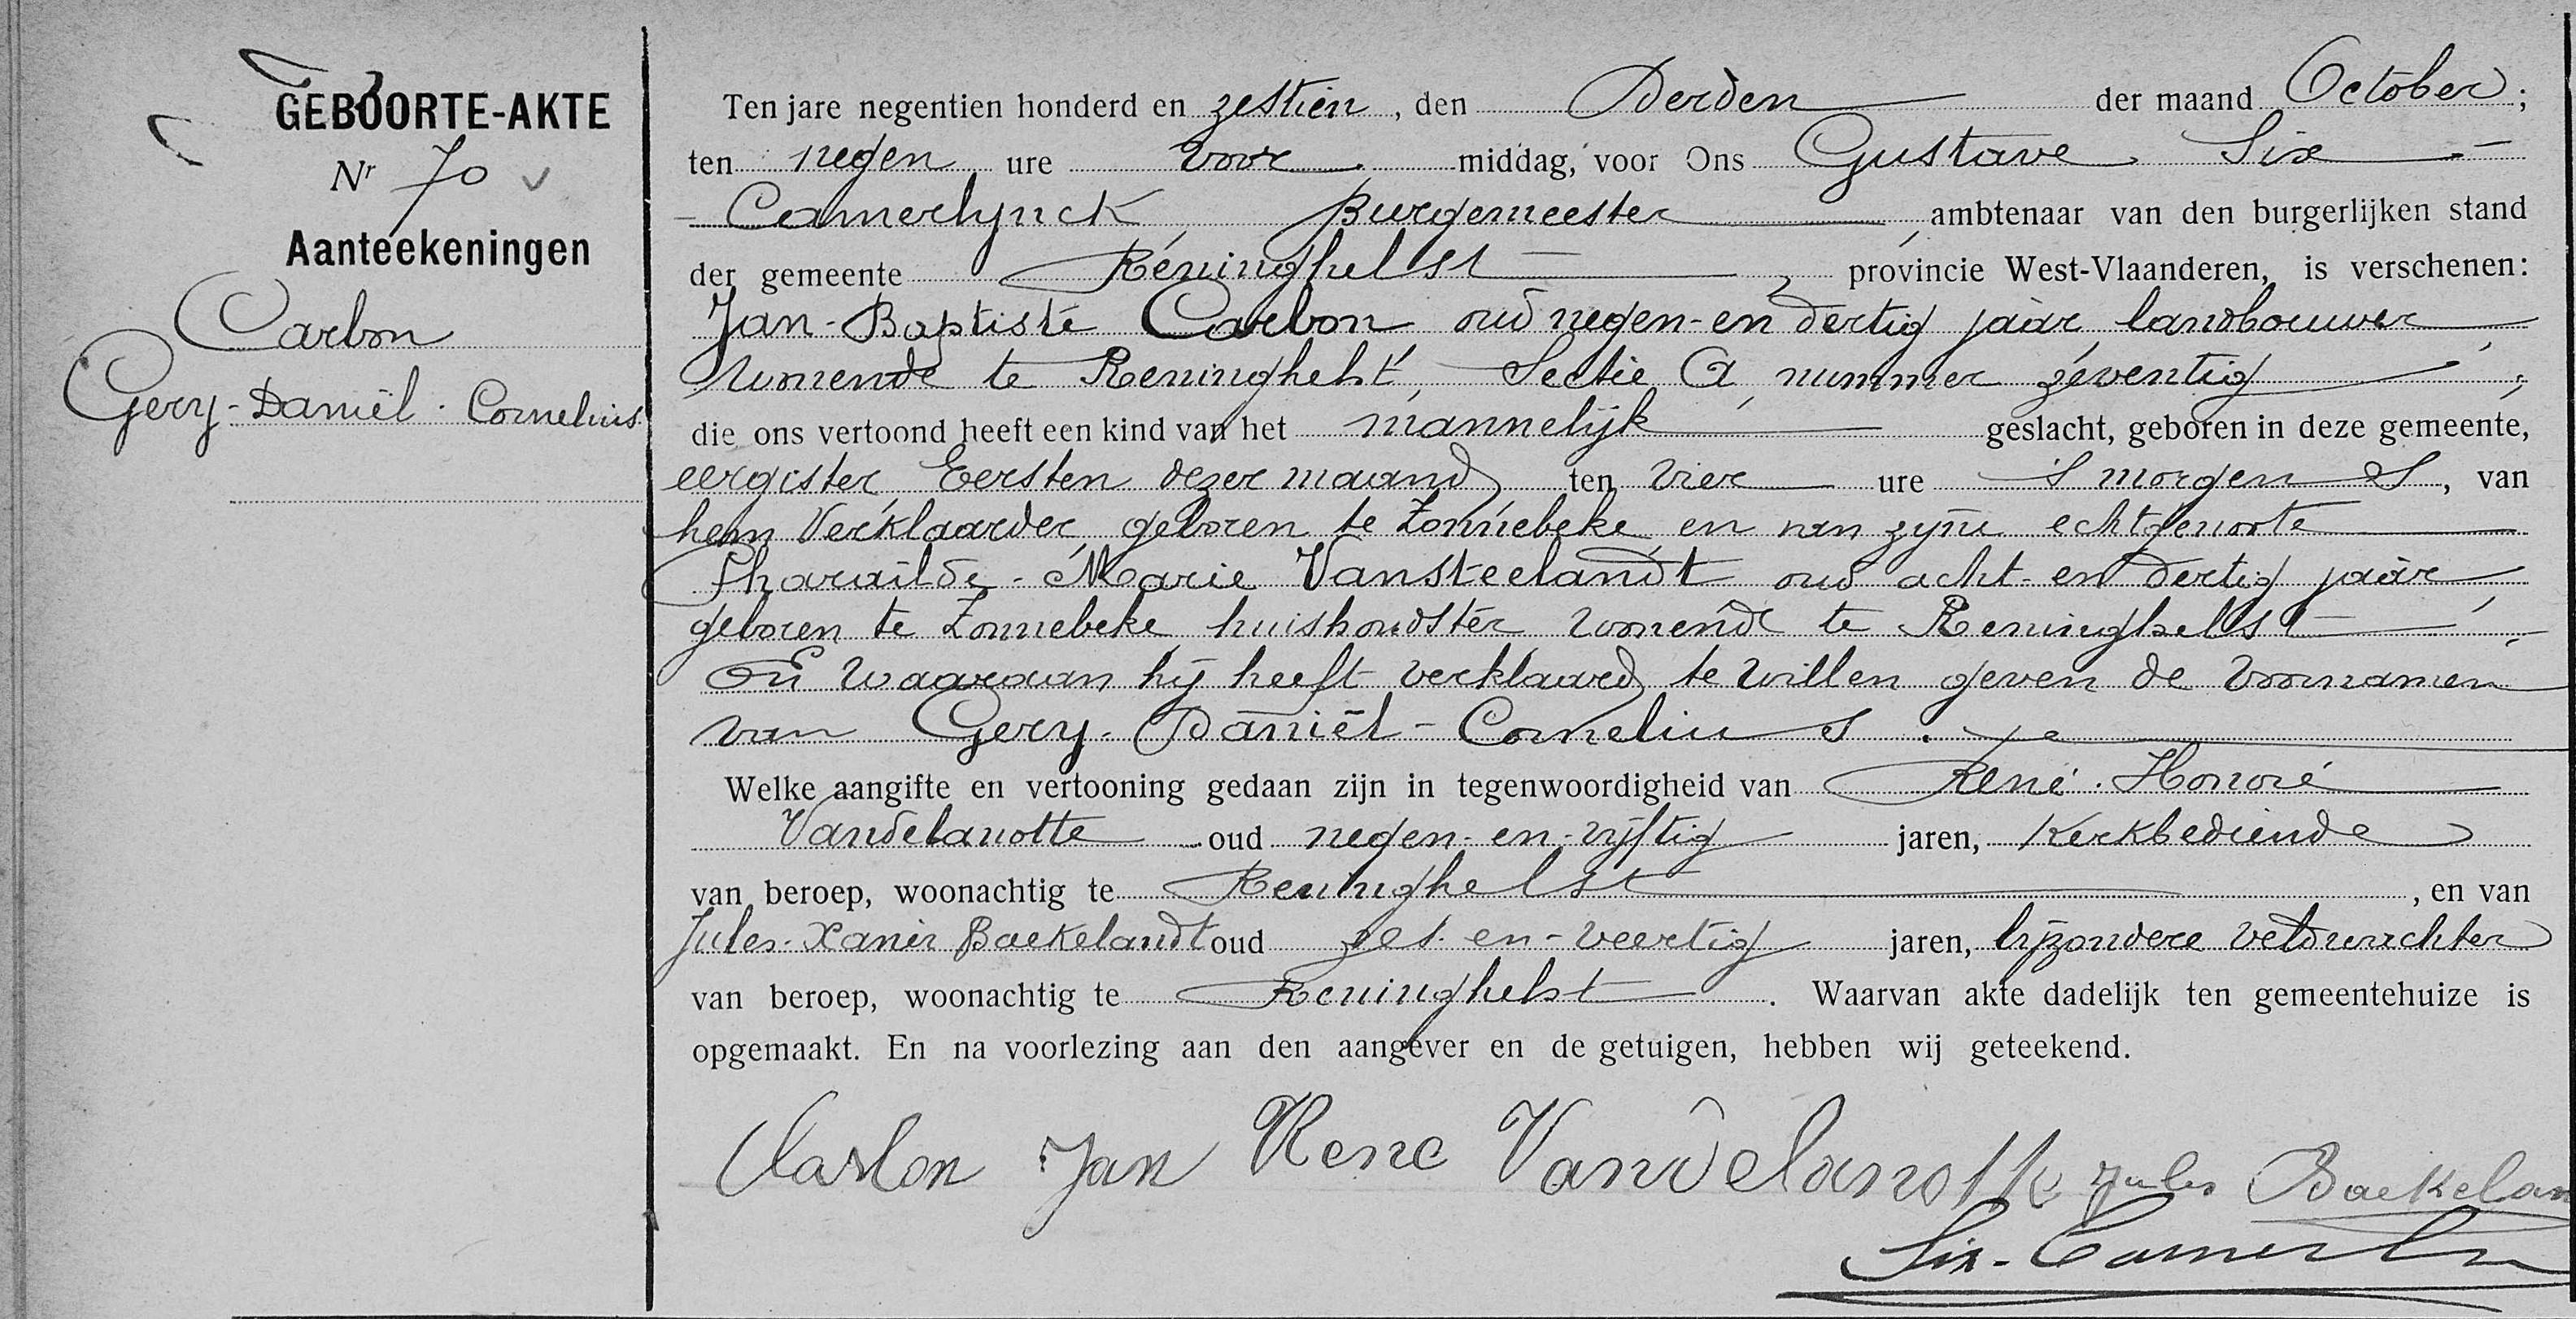 GEBOORTE-AKTE
Nr 70
Aanteekeningen
Carbon
Gery-Daniël-Cornelius
Ten jare negentien honderd en zestien, den Derden der maand October;
ten negen ure voor middag, voor Ons Gustave Six
Camerlynck, Burgemeester, ambtenaar van den burgerlijken stand
der gemeente Reninghelst, provincie West-Vlaanderen, is verschenen:
Jan-Baptiste Carbon, oud negen-en dertig jaar, landbouwer,
wonende te Reninghelst, Sectie A, nummer zeventig;
die ons vertoond heeft een kind van het mannelijk geslacht, geboren in deze gemeente,
eergister, Eersten dezer maand ten vier ure 'S morgens, van
hem Verklaarder, geboren te Zonnebeke, en van zijne echtgenoote
Pharaïlde-Marie Vansteelandt oud acht-en dertig jaar,
geboren te Zonnebeke, huishoudster, wonende te Reninghelst,
En waaraan hij heeft verklaard te willen geven de voornamen
van Gery-Daniël-Cornelius.
Welke aangifte en vertooning gedaan zijn in tegenwoordigheid van René-Honoré
Vandelanotte oud negen-en-vijftig jaren, Kerkbediende
van beroep, woonachtig te Reninghelst, en van
Jules-Xavier Baekelandt oud zes-en-veertig jaren, bijzondere veldwachter
van beroep, woonachtig te Reninghelst. Waarvan akte dadelijk ten gemeentehuize is
opgemaakt. En na voorlezing aan den aangever en de getuigen, hebben wij geteekend.
Carbon Jan Rene Vandelanotte Jules Baekelan
Six-Camerl